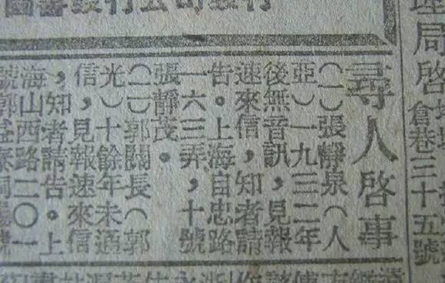 理局啓
倉巷三十五號
尋人啓事
(一)張靜泉(人
亞)一九三二年
後無音訊,見報
速來信,知者請
告。上海自忠路
一六三弄,十號
張靜茂。
(二)郭關長(郭
光)十餘年未通
信,見報速來信
,知者請告。上
海山西路二〇一
號